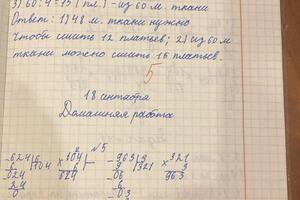 3) 60:4=15 (пл.) - из 60 м. ткани
Ответ: 1) 48 м. ткани нужно
чтобы сшить 12 платьев; 2) из 60 м
ткани можно сшить 15 платьев.
5
18 сентября
Домашняя работа
№5
624 6 104 × 104 963 3 × 321
6 104 6 9 321 3
024 624 06 963
24 6
0 03